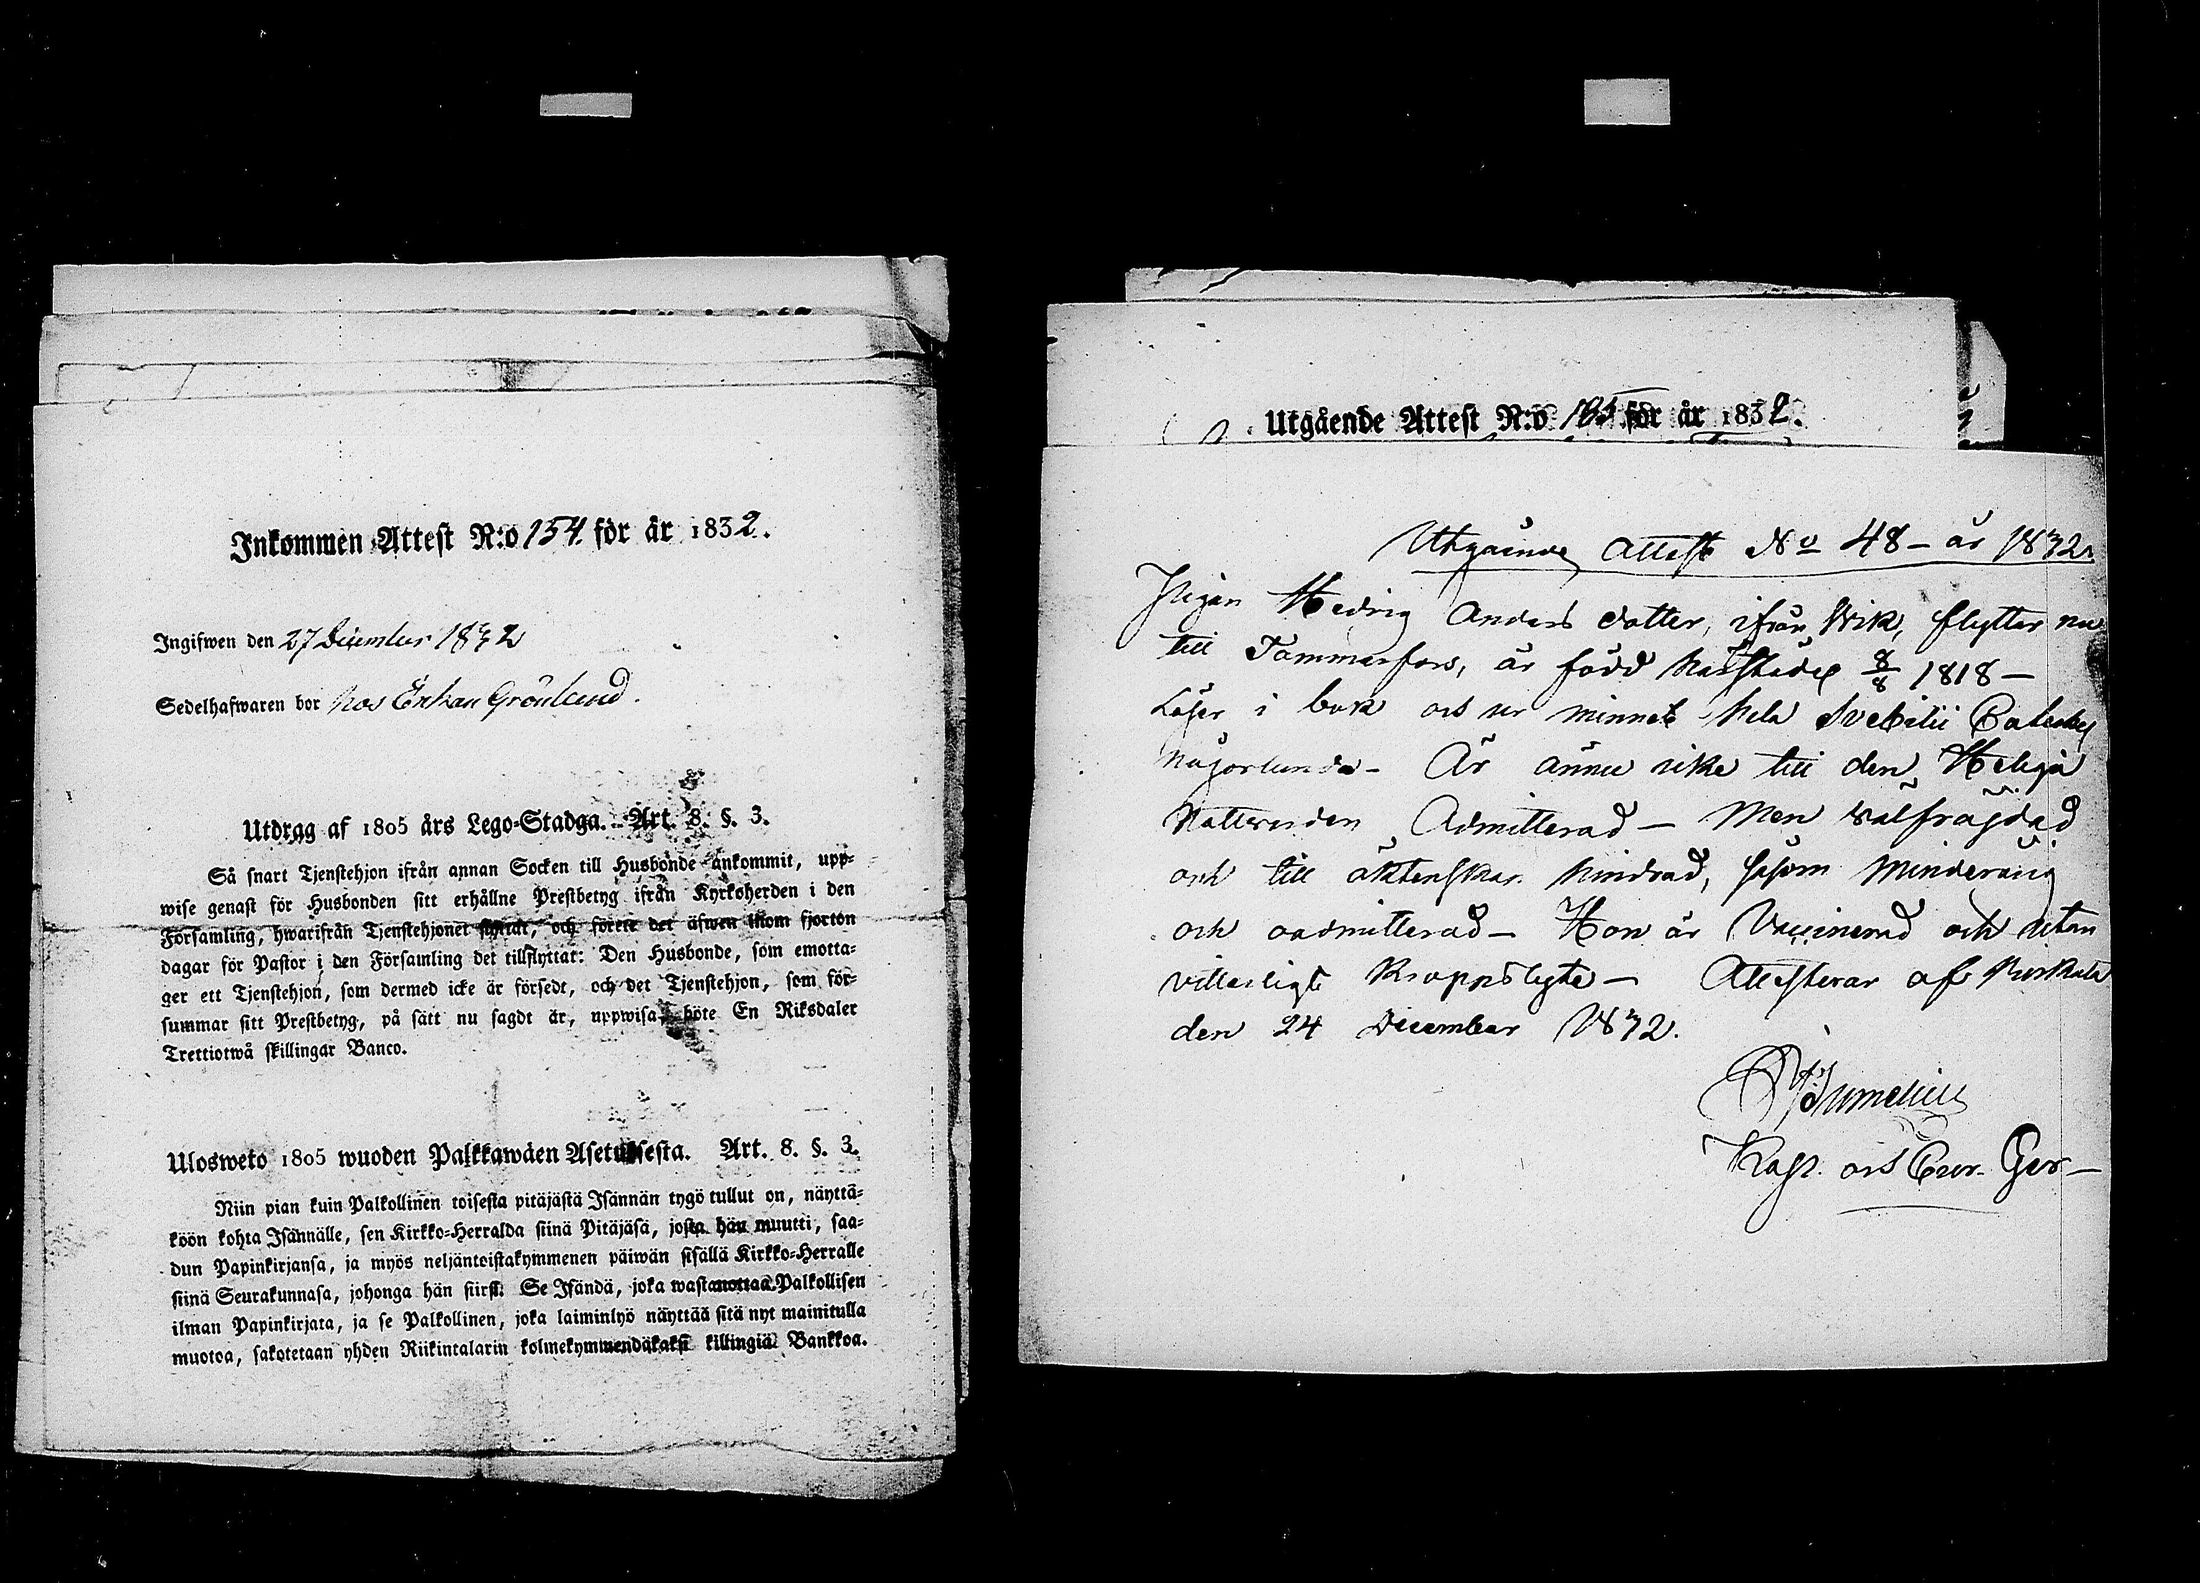 Inkommen Attest N:o 154. för år 1832.
Ingifwen den 27 December 1832
Sedelhafwaren bor hos Enkan Grönlund.
Utdrag af 1805 års Lego-Stadga. Art. 8. §. 3.
Så snart Tjenstehjon ifrån annan Socken till Husbonde ankommit, upp-
wise genast för Husbonden sitt erhållne Prestbetyg ifrån Kyrkoherden i den
Församling, hwarifrån Tjenstehjonet flyttat, och förete det äfwen inom fjorton
dagar för Pastor i den Församling det tillflyttat: Den Husbonde, som emotta-
ger ett Tjenstehjon, som dermed icke är försedt, och det Tjenstehjon, som för-
summar sitt Prestbetyg, på sätt nu sagdt är, uppwisa, böte En Riksdaler
Trettiotwå skillingar Banco.
Ulosweto 1805 wuoden Palkkawäen Asetuksesta. Art. 8. §. 3.
Niin pian kuin Palkollinen toisesta pitäjästä Isännän tygö tullut on, näyttä-
köön kohta Isännälle, sen Kirkko-Herralda siinä Pitäjäsä, josta hän muutti, saa-
dun Papinkirjansa, ja myös neljäntoistakymmenen päiwän sisällä Kirkko-Herralle
siinä Seurakunnasa, johonga hän siirsi: Se Isändä, joka wastanottaa Palkollisen
ilman Papinkirjata, ja se Palkollinen, joka laiminlyö näyttää sitä nyt mainitulla
muotoa, sakotetaan yhden Riikintalarin kolmekymmendäkaksi killingiä Bankkoa.
Utgående Attest N:o för år 1832.
Utgående Attest No 48 - år 1832.
Pigan Hedvig Anders dotter, ifrån Wik, flyttar nu
till Tammerfors, är född härstädes 8/8 1818 -
Läser i bok och ur minnet hela Svebilii Cateches
någorlunda - Är ännu icke till den Heliga
Nattvarden Admitterad - Men välfrägdad
och till äktenskap hindrad, såsom Minderårig
och oadmitterad - Hon är Vaccinerad och utan
vitterligt Kroppslyte - Attesterar af
den 24 December 1832.
Kapl. och Cur. Ger -